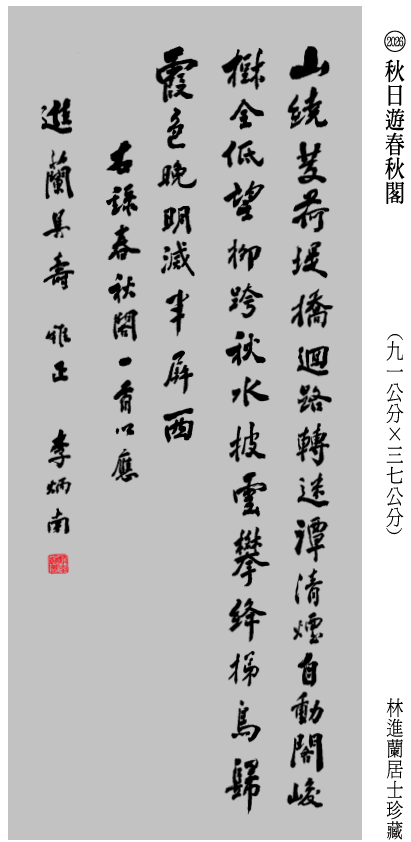 2026 秋日遊春秋閣 (九一公分×三七公分) 林進蘭居士珍藏
山繞芰荷堤橋迴路轉迷潭清煙自動閣峻
樹全低望柳跨秋水披雲攀絳梯鳥歸
霞色晚明滅半屏西
右錄春秋閣一首以應
進蘭具壽 雅正 李炳南